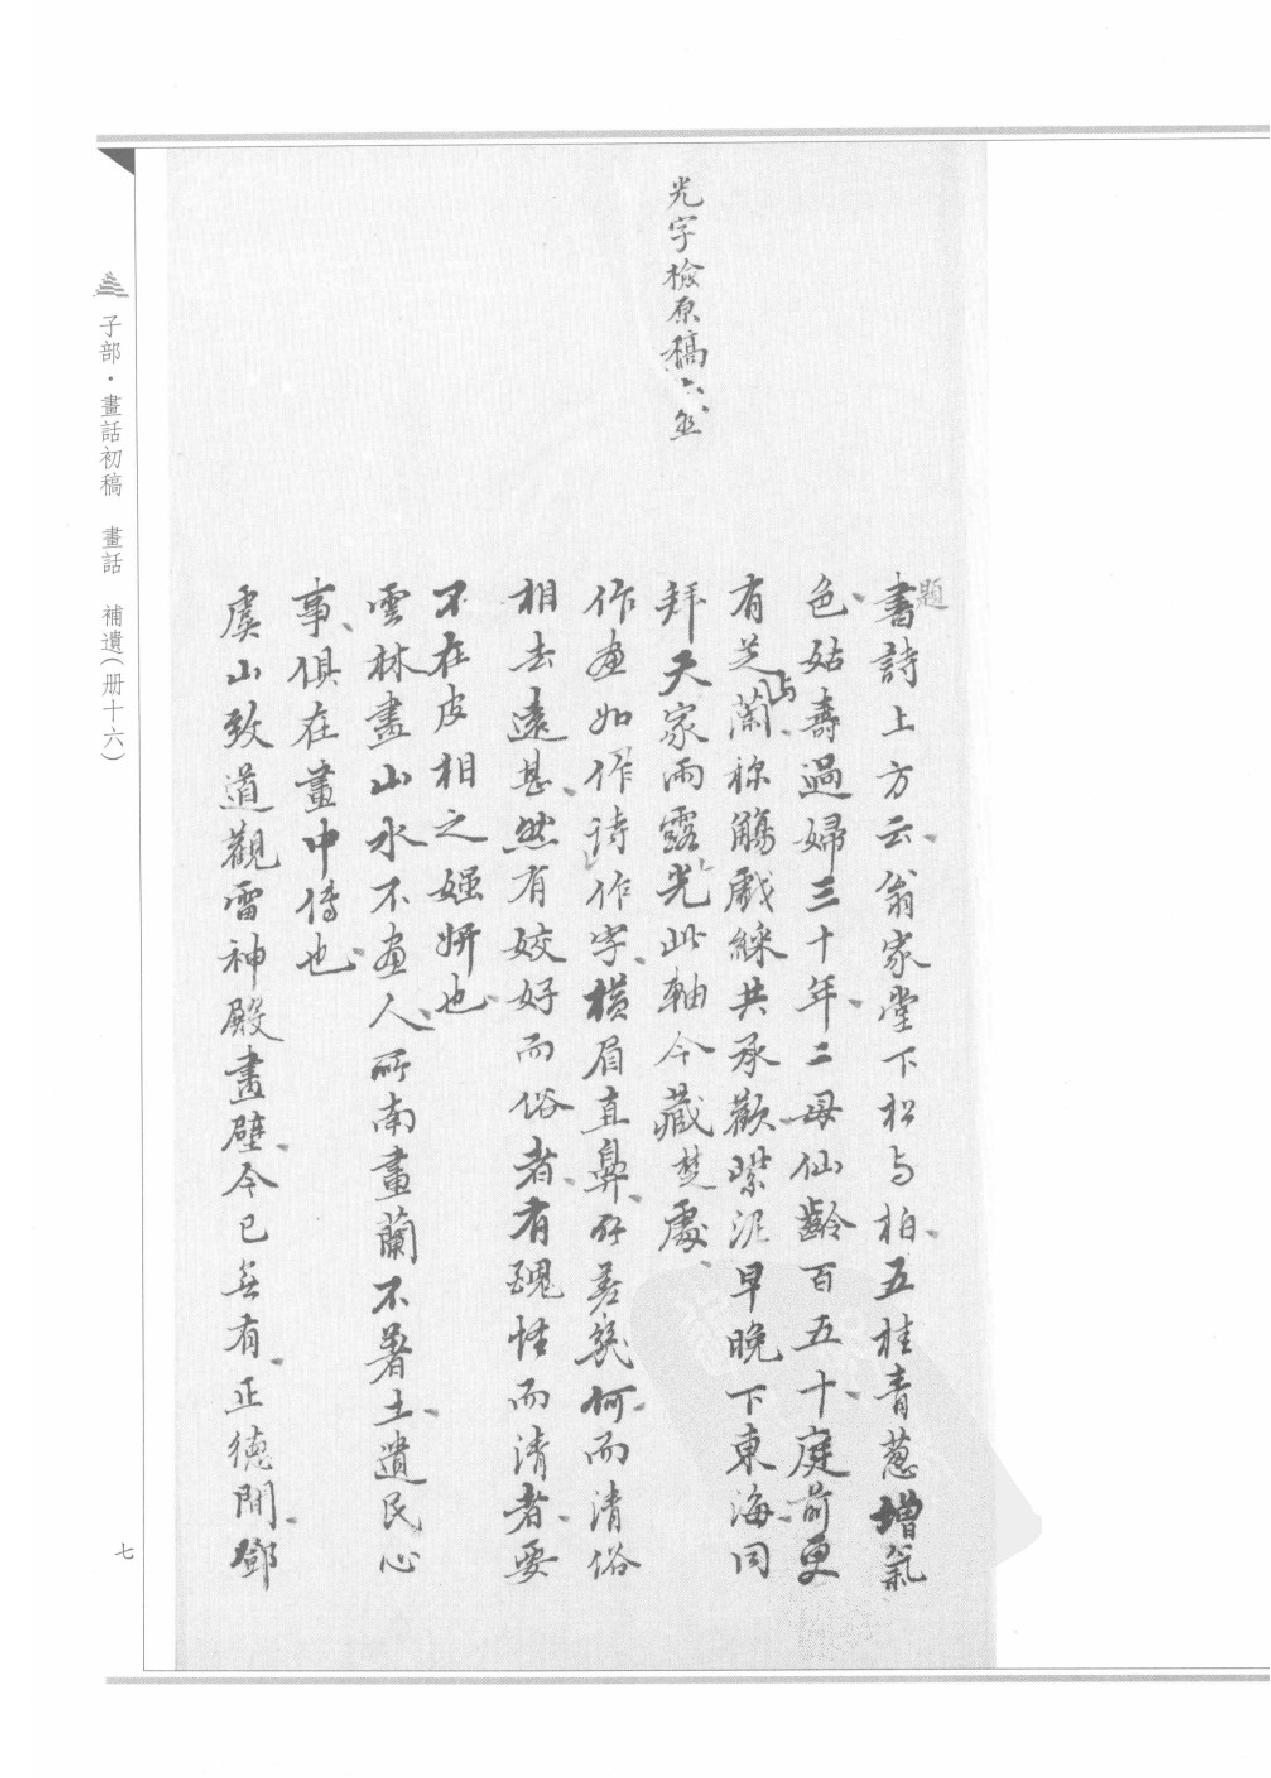 光字檢原稿亦無
題
書詩上方云翁家堂下松与柏五桂青蔥增氣
色姑壽過婦三十年二母仙齡百五十庭前更
有芝与蘭稱觴戲綵共承歡槩泥早晚下東海同
拜天家雨露光此軸今藏楚處
作画如作詩作字橫眉直鼻所差幾何而清俗
相去遠甚然有姣好而俗者有醜怪而清者要
不在皮相之媸妍也
雲林畫山水不画人所南畫蘭不著土遺民心
事俱在畫中傳也
虞山致道觀雷神殿畫壁今已無有正德間鄧
子部・畫話初稿 畫話 補遺(册十六)
七